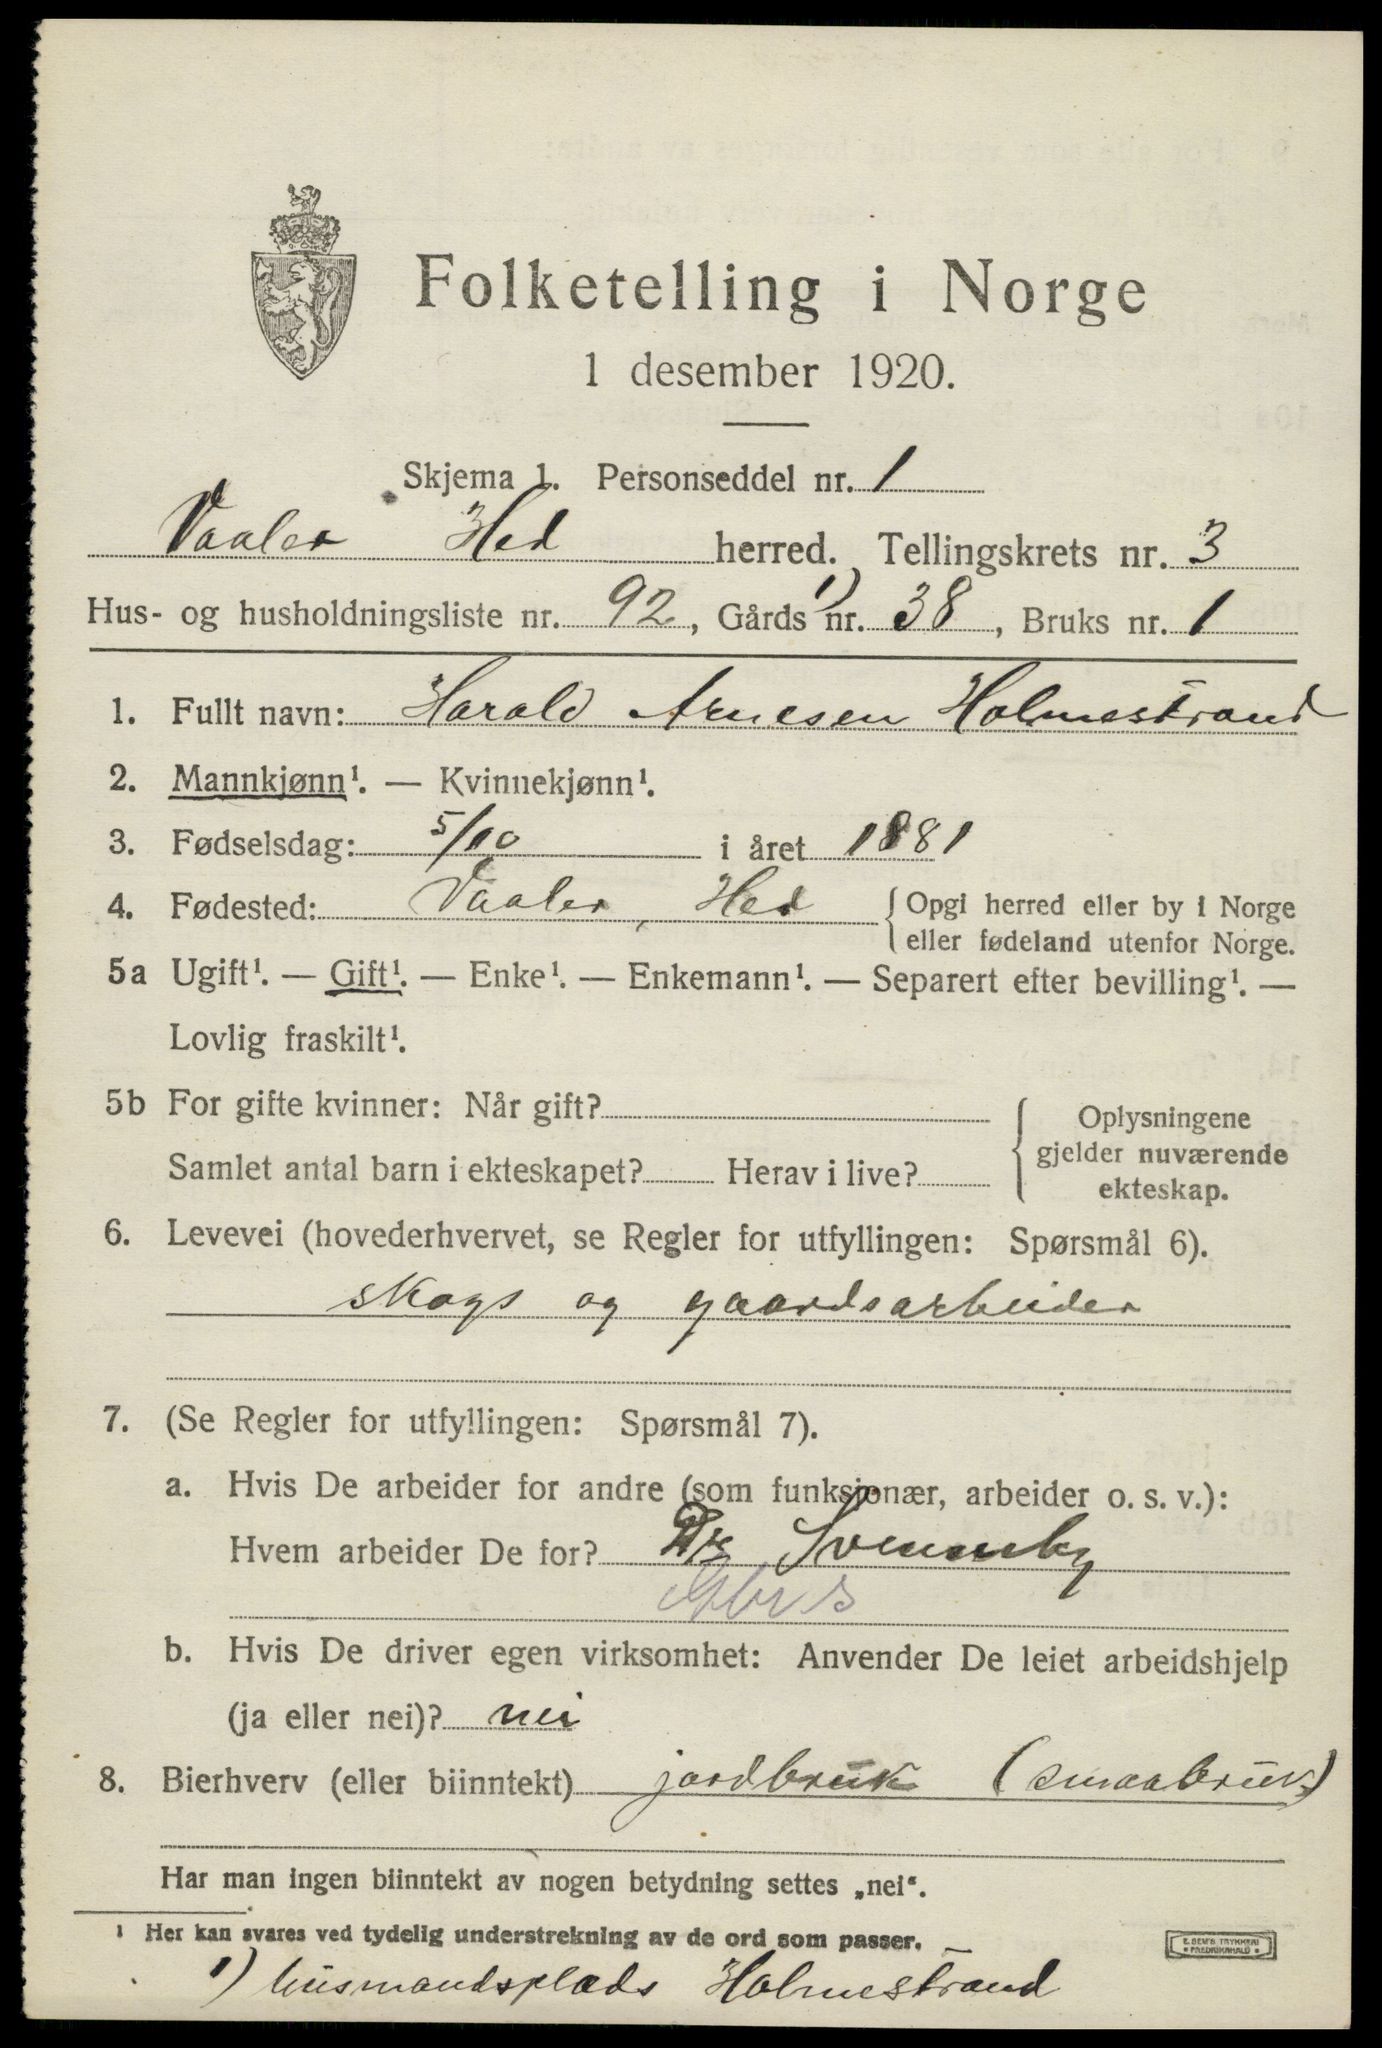 Folketelling i Norge
1 desember 1920.
Skjema 1. Personseddel nr. 1
Vaaler Hed herred. Tellingskrets nr. 3
Hus- og husholdningsliste nr. 92, Gårds 1) nr. 38, Bruks nr. 1
1. Fullt navn: Harald Arnesen Holmestrand
2. Mannkjønn¹. — Kvinnekjønn¹.
3. Fødselsdag: 5/10 i året 1881
4. Fødested: Vaaler, Hed { Opgi herred eller by i Norge
eller fødeland utenfor Norge.
5a Ugift¹. — Gift¹. — Enke¹. — Enkemann¹. — Separert efter bevilling¹. —
Lovlig fraskilt¹.
5b For gifte kvinner: Når gift?
Samlet antal barn i ekteskapet? Herav i live?
{ Oplysningene
gjelder nuværende
ekteskap.
6. Levevei (hovederhvervet, se Regler for utfyllingen: Spørsmål 6).
skogs og gaardsarbeider
7. (Se Regler for utfyllingen: Spørsmål 7).
a. Hvis De arbeider for andre (som funksjonær, arbeider o. s. v.):
Hvem arbeider De for? Svenneby
b. Hvis De driver egen virksomhet: Anvender De leiet arbeidshjelp
(ja eller nei)? nei
8. Bierhverv (eller biinntekt) jordbruk (smaabruk)
Har man ingen biinntekt av nogen betydning settes „nei".
¹ Her kan svares ved tydelig understrekning av de ord som passer.
E. SEM'S TRYKKERI
FREDRIKSHALD
1) husmandsplads Holmestrand